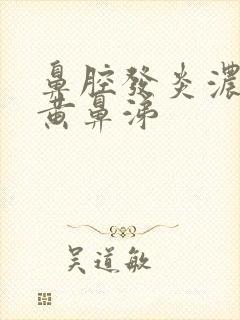 鼻腔發炎濃
黃鼻涕
吴道敏